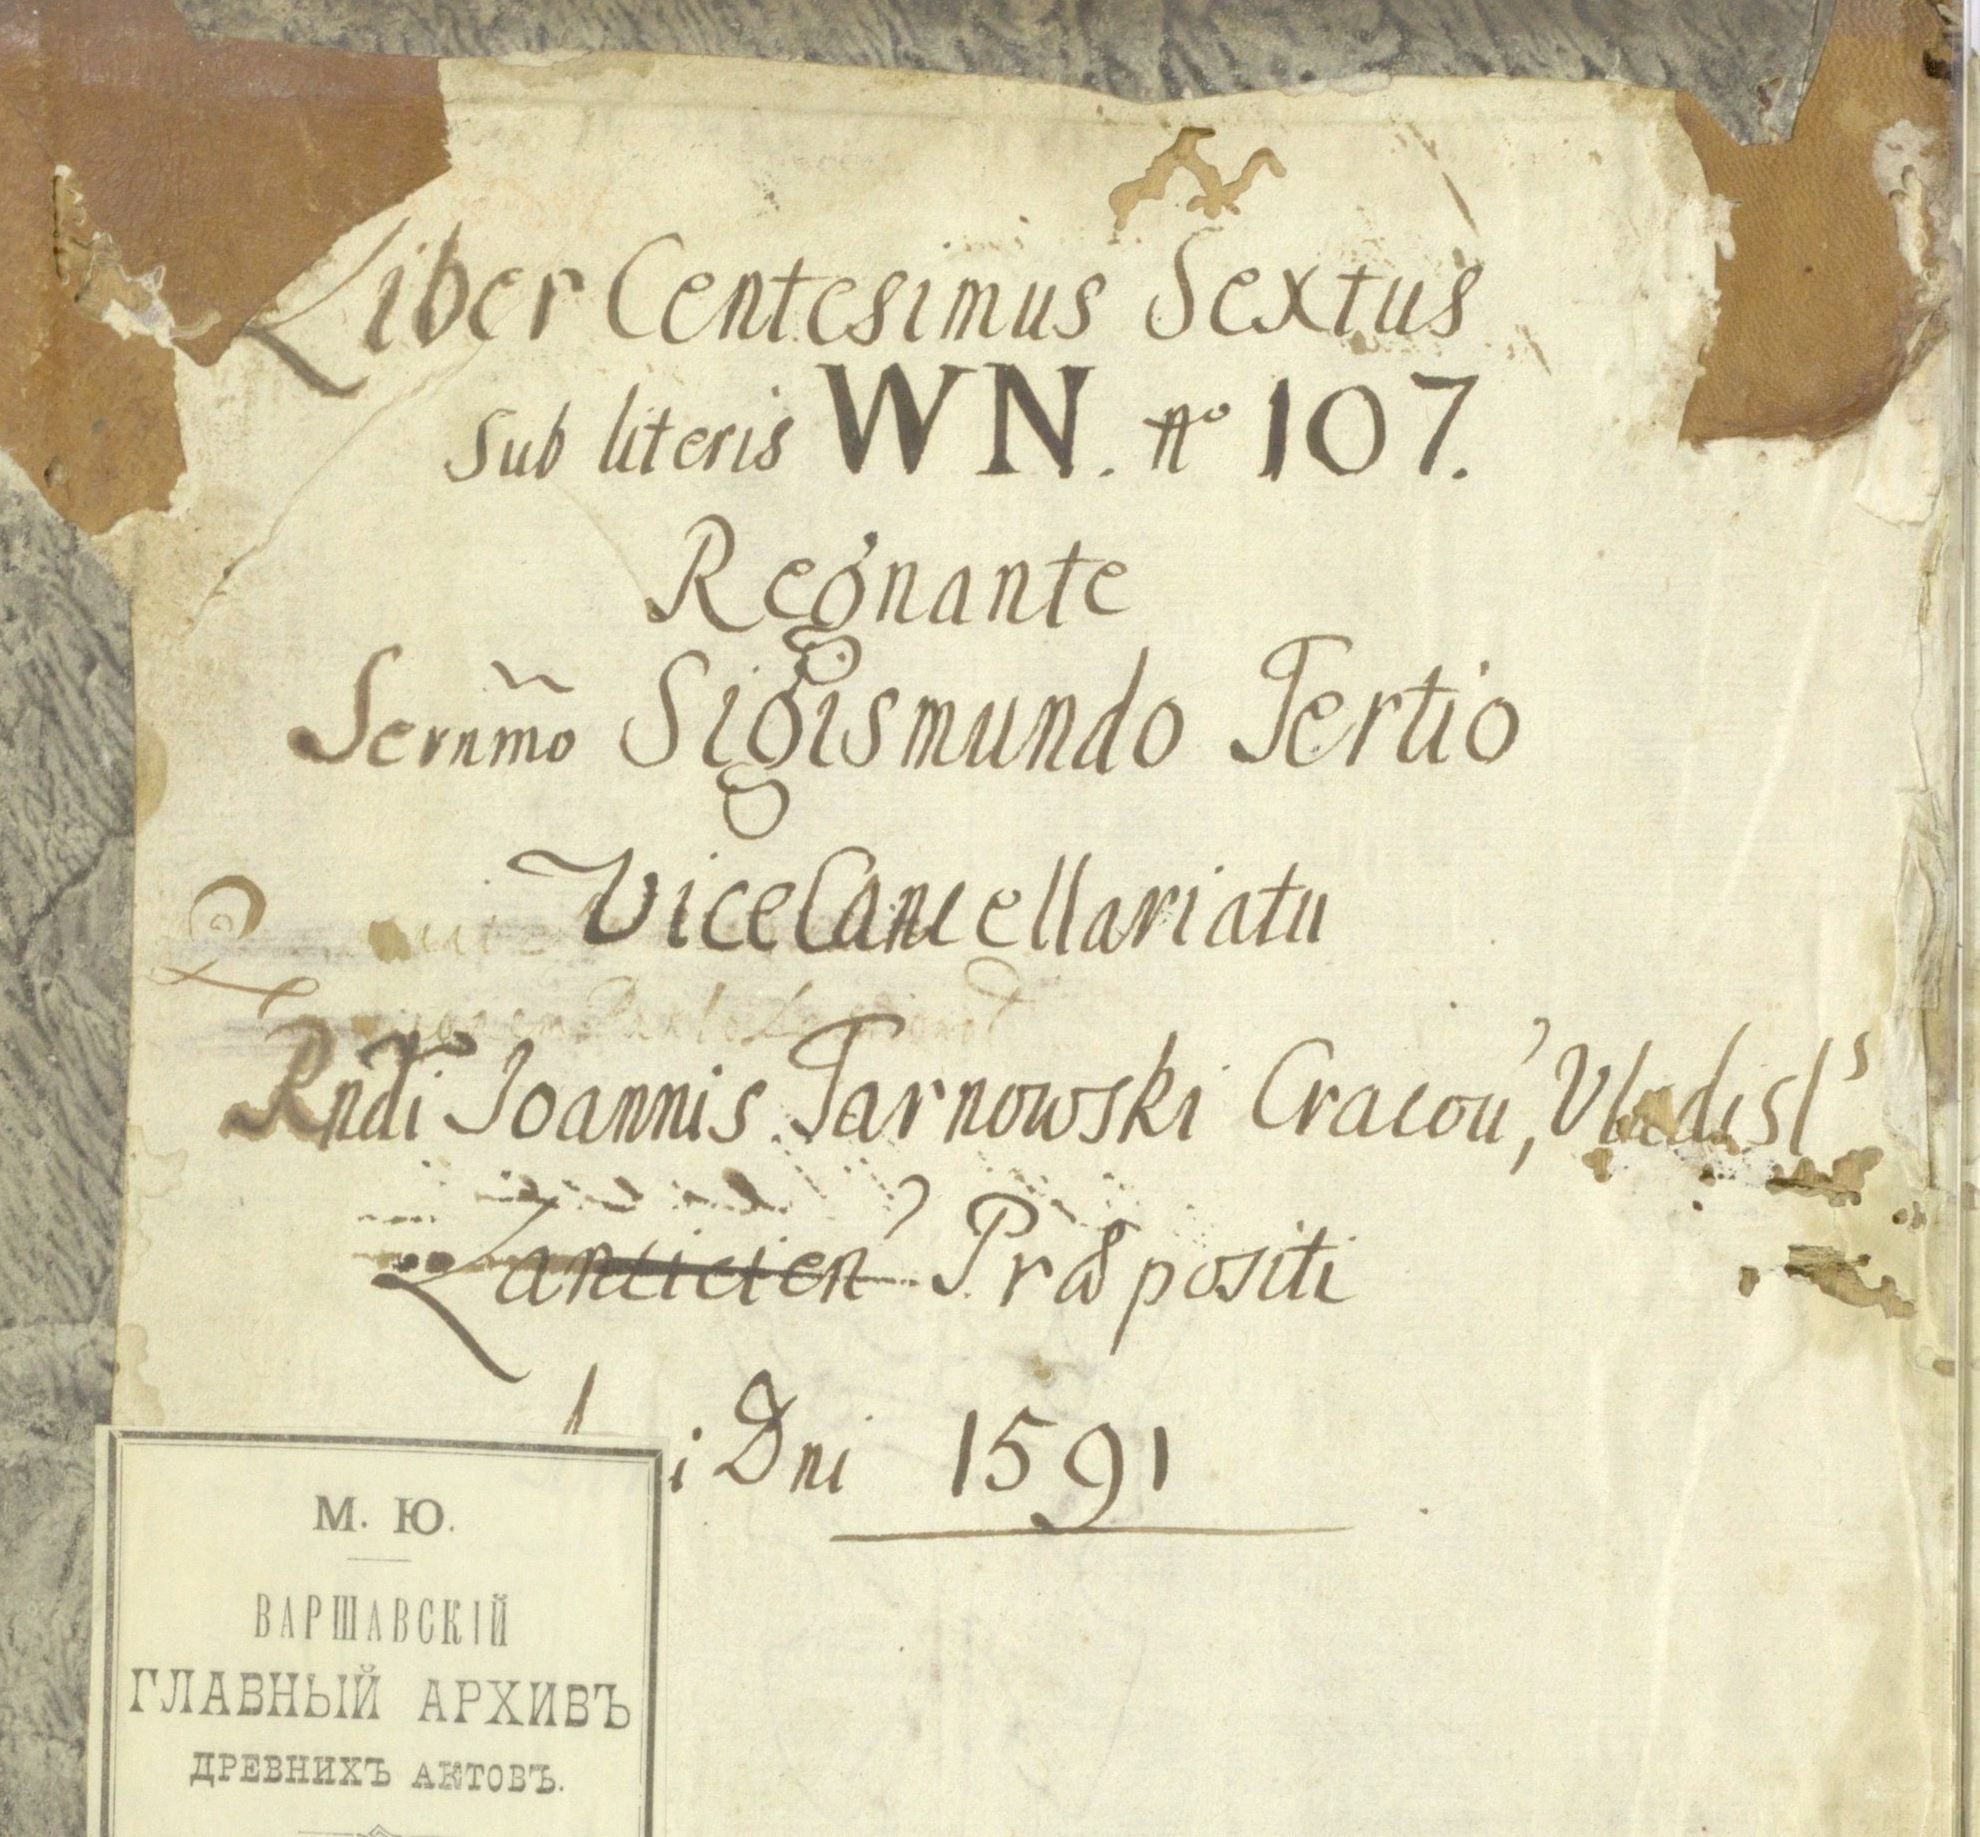 Liber Centesimus Sextus
sub literis WN. no 107.
Regnante
Sernmo Sigismundo Tertio
ViceCancellariatu
Rndi Joannis Tarnowski Cracou, Vladisl s
Lancicien Præpositi
i Dni 1591
М. Ю.
ВАРШАВСКІЙ
ГЛАВНЫЙ АРХИВЪ
ДРЕВНИХЪ АКТОВЪ.